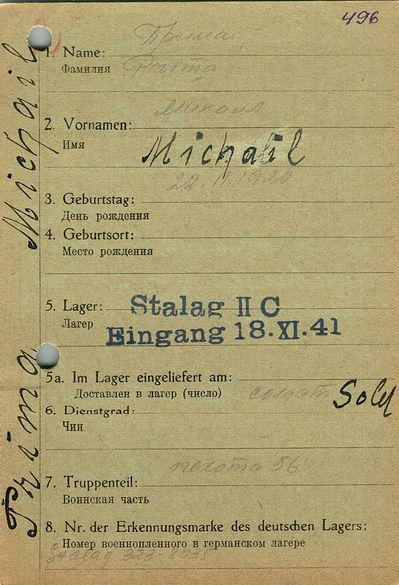 496
Прима
1. Name: Prima
Фамилия
Михаил
2. Vornamen:
Имя
Michail
3. Geburtstag:
День рождения
4. Geburtsort:
Место рождения
5. Lager: Stalag II C
Лагер Eingang 18.XI.41
5a. Im Lager eingeliefert am:
Доставлен в лагер (число)
солдат Sold
6. Dienstgrad:
Чин
пехота 56
7. Truppenteil:
Воинская часть
8. Nr. der Erkennungsmarke des deutschen Lagers:
Номер военнопленного в германском лагере
Stalag
Prima Michail